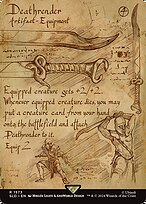 Deathrender
Artifact - Equipment
Equipped creature gets +2/+2.
Whenever equipped creature dies, you may
put a creature card from your hand
onto the battlefield and attach
Deathrender to it.
Equip 2
R 1573
SLD • EN